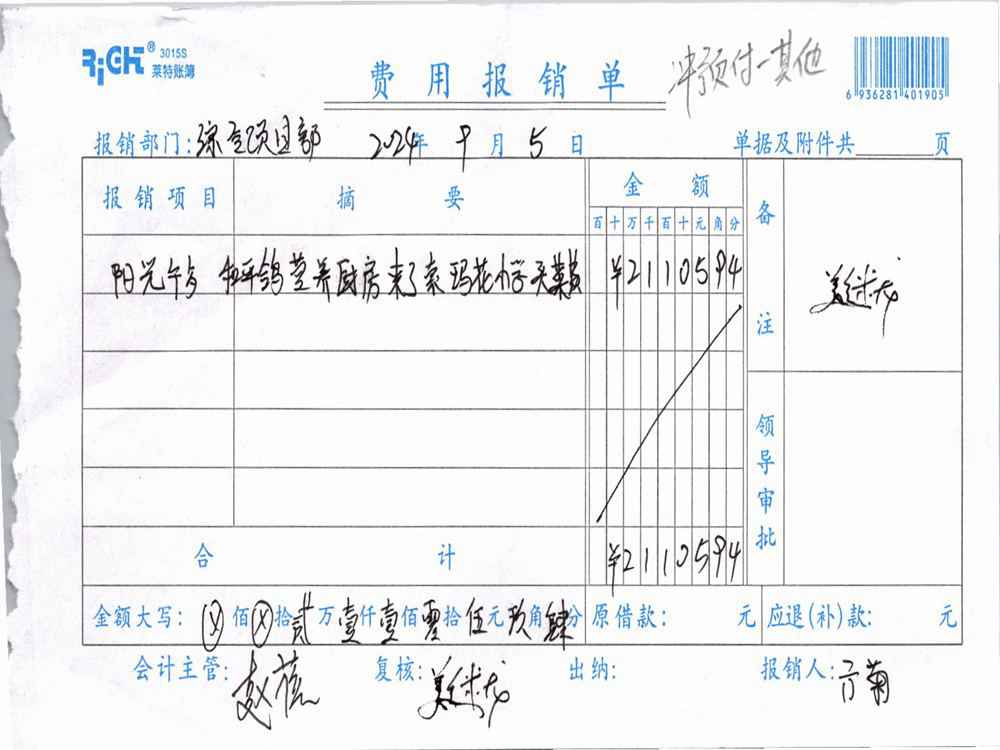 RiCH® 3015S
莱特账簿
费用报销单 冲预付-其他
6 936281 401905
报销部门: 综合项目部 2024年 9月 5日 单据及附件共 页
报销项目 摘要 金额 备注
百 十 万 千 百 十 元 角 分
阳光午餐 和平鸽营养厨房来了索玛花小学天菜 ¥2110594
领导审批
合计 ¥2110594
金额大写: ⊗佰⊗拾贰万壹仟壹佰零拾伍元玖角肆分 原借款: 元 应退(补)款: 元
会计主管: 赵蓓 复核: 出纳: 报销人: 菊